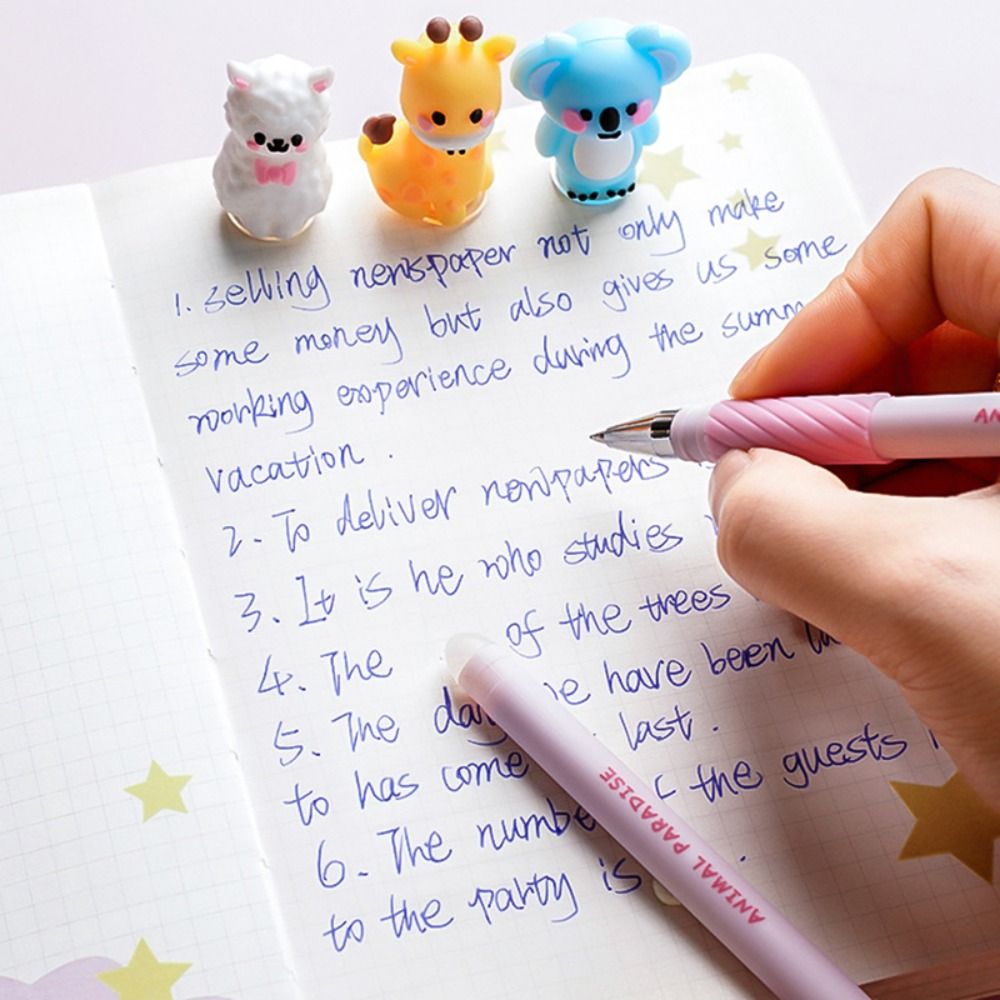 1. selling newspaper not only make
some money but also gives us some
working experience during the
vacation.
2. To deliver newspapers
3. It is he who studies
4. The of the trees
5. The have been
to has come last.
6. The number of the guests
to the party is
ANIMAL PARADISE